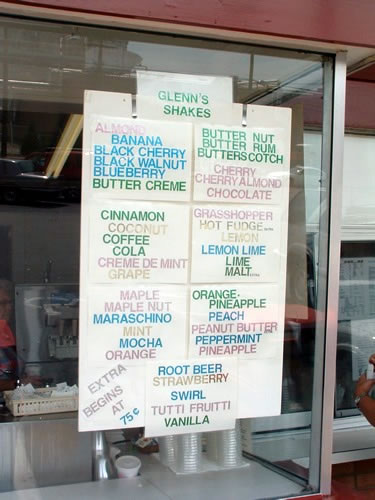 GLENN'S
SHAKES
ALMOND
BANANA
BLACK CHERRY
BLACK WALNUT
BLUEBERRY
BUTTER CREME
BUTTER NUT
BUTTER RUM
BUTTERSCOTCH
CHERRY
CHERRY ALMOND
CHOCOLATE
CINNAMON
COCONUT
COFFEE
COLA
CREME DE MINT
GRAPE
GRASSHOPPER
HOT FUDGE
LEMON
LEMON LIME
LIME
MALT
MAPLE
MAPLE NUT
MARASCHINO
MINT
MOCHA
ORANGE
ORANGE-
PINEAPPLE
PEACH
PEANUT BUTTER
PEPPERMINT
PINEAPPLE
ROOT BEER
STRAWBERRY
SWIRL
TUTTI FRUITTI
VANILLA
EXTRA
BEGINS
AT
75¢